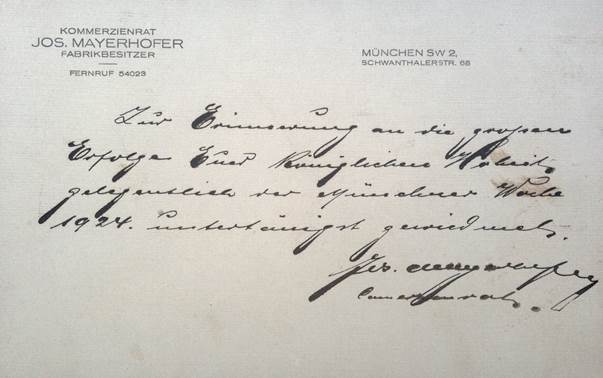 KOMMERZIENRAT
JOS. MAYERHOFER
FABRIKBESITZER
FERNRUF 54023
MÜNCHEN SW 2,
SCHWANTHALERSTR. 68
Zur Erinnerung an die grossen
Erfolge Euer königlichen Hoheit,
gelegentlich der Münchner Woche
1924. untertänigst gewidmet.
Jos. Mayerhofer
Comerzienrat.